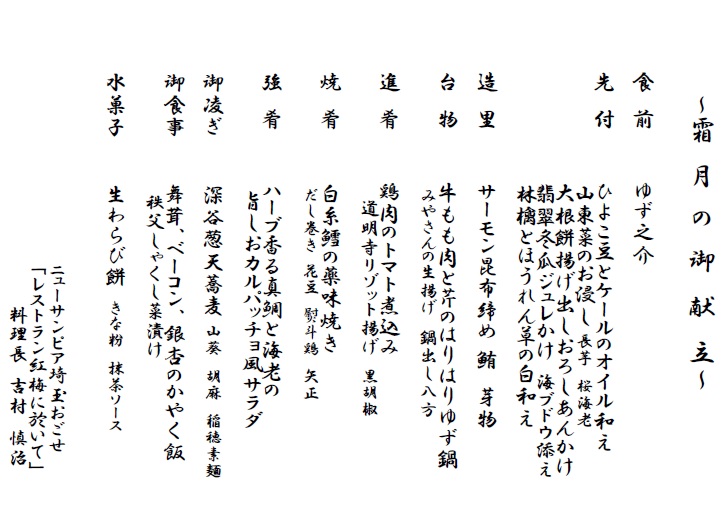 ～霜月の御献立～
食前　ゆず之介
先付　ひよこ豆とケールのオイル和え
山東菜のお浸し 長芋 桜海老
大根餅揚げ出しおろしあんかけ
翡翠冬瓜ジュレかけ 海ブドウ添え
林檎とほうれん草の白和え
造里　サーモン昆布締め 鮪 芽物
台物　牛もも肉と芹のはりはりゆず鍋
みやさんの生揚げ 鍋出し八方
進肴　鶏肉のトマト煮込み
道明寺リゾット揚げ 黒胡椒
焼肴　白糸鱈の薬味焼き
だし巻き 花豆 熨斗鶏 矢正
強肴　ハーブ香る真鯛と海老の
旨しおカルパッチョ風サラダ
御凌ぎ　深谷葱天蕎麦 山葵 胡麻 稲穂素麺
御食事　舞茸、ベーコン、銀杏のかやく飯
秩父しゃくし菜漬け
水菓子　生わらび餅 きな粉 抹茶ソース
ニューサンピア埼玉おごせ
「レストラン紅梅に於いて」
料理長 吉村 慎治